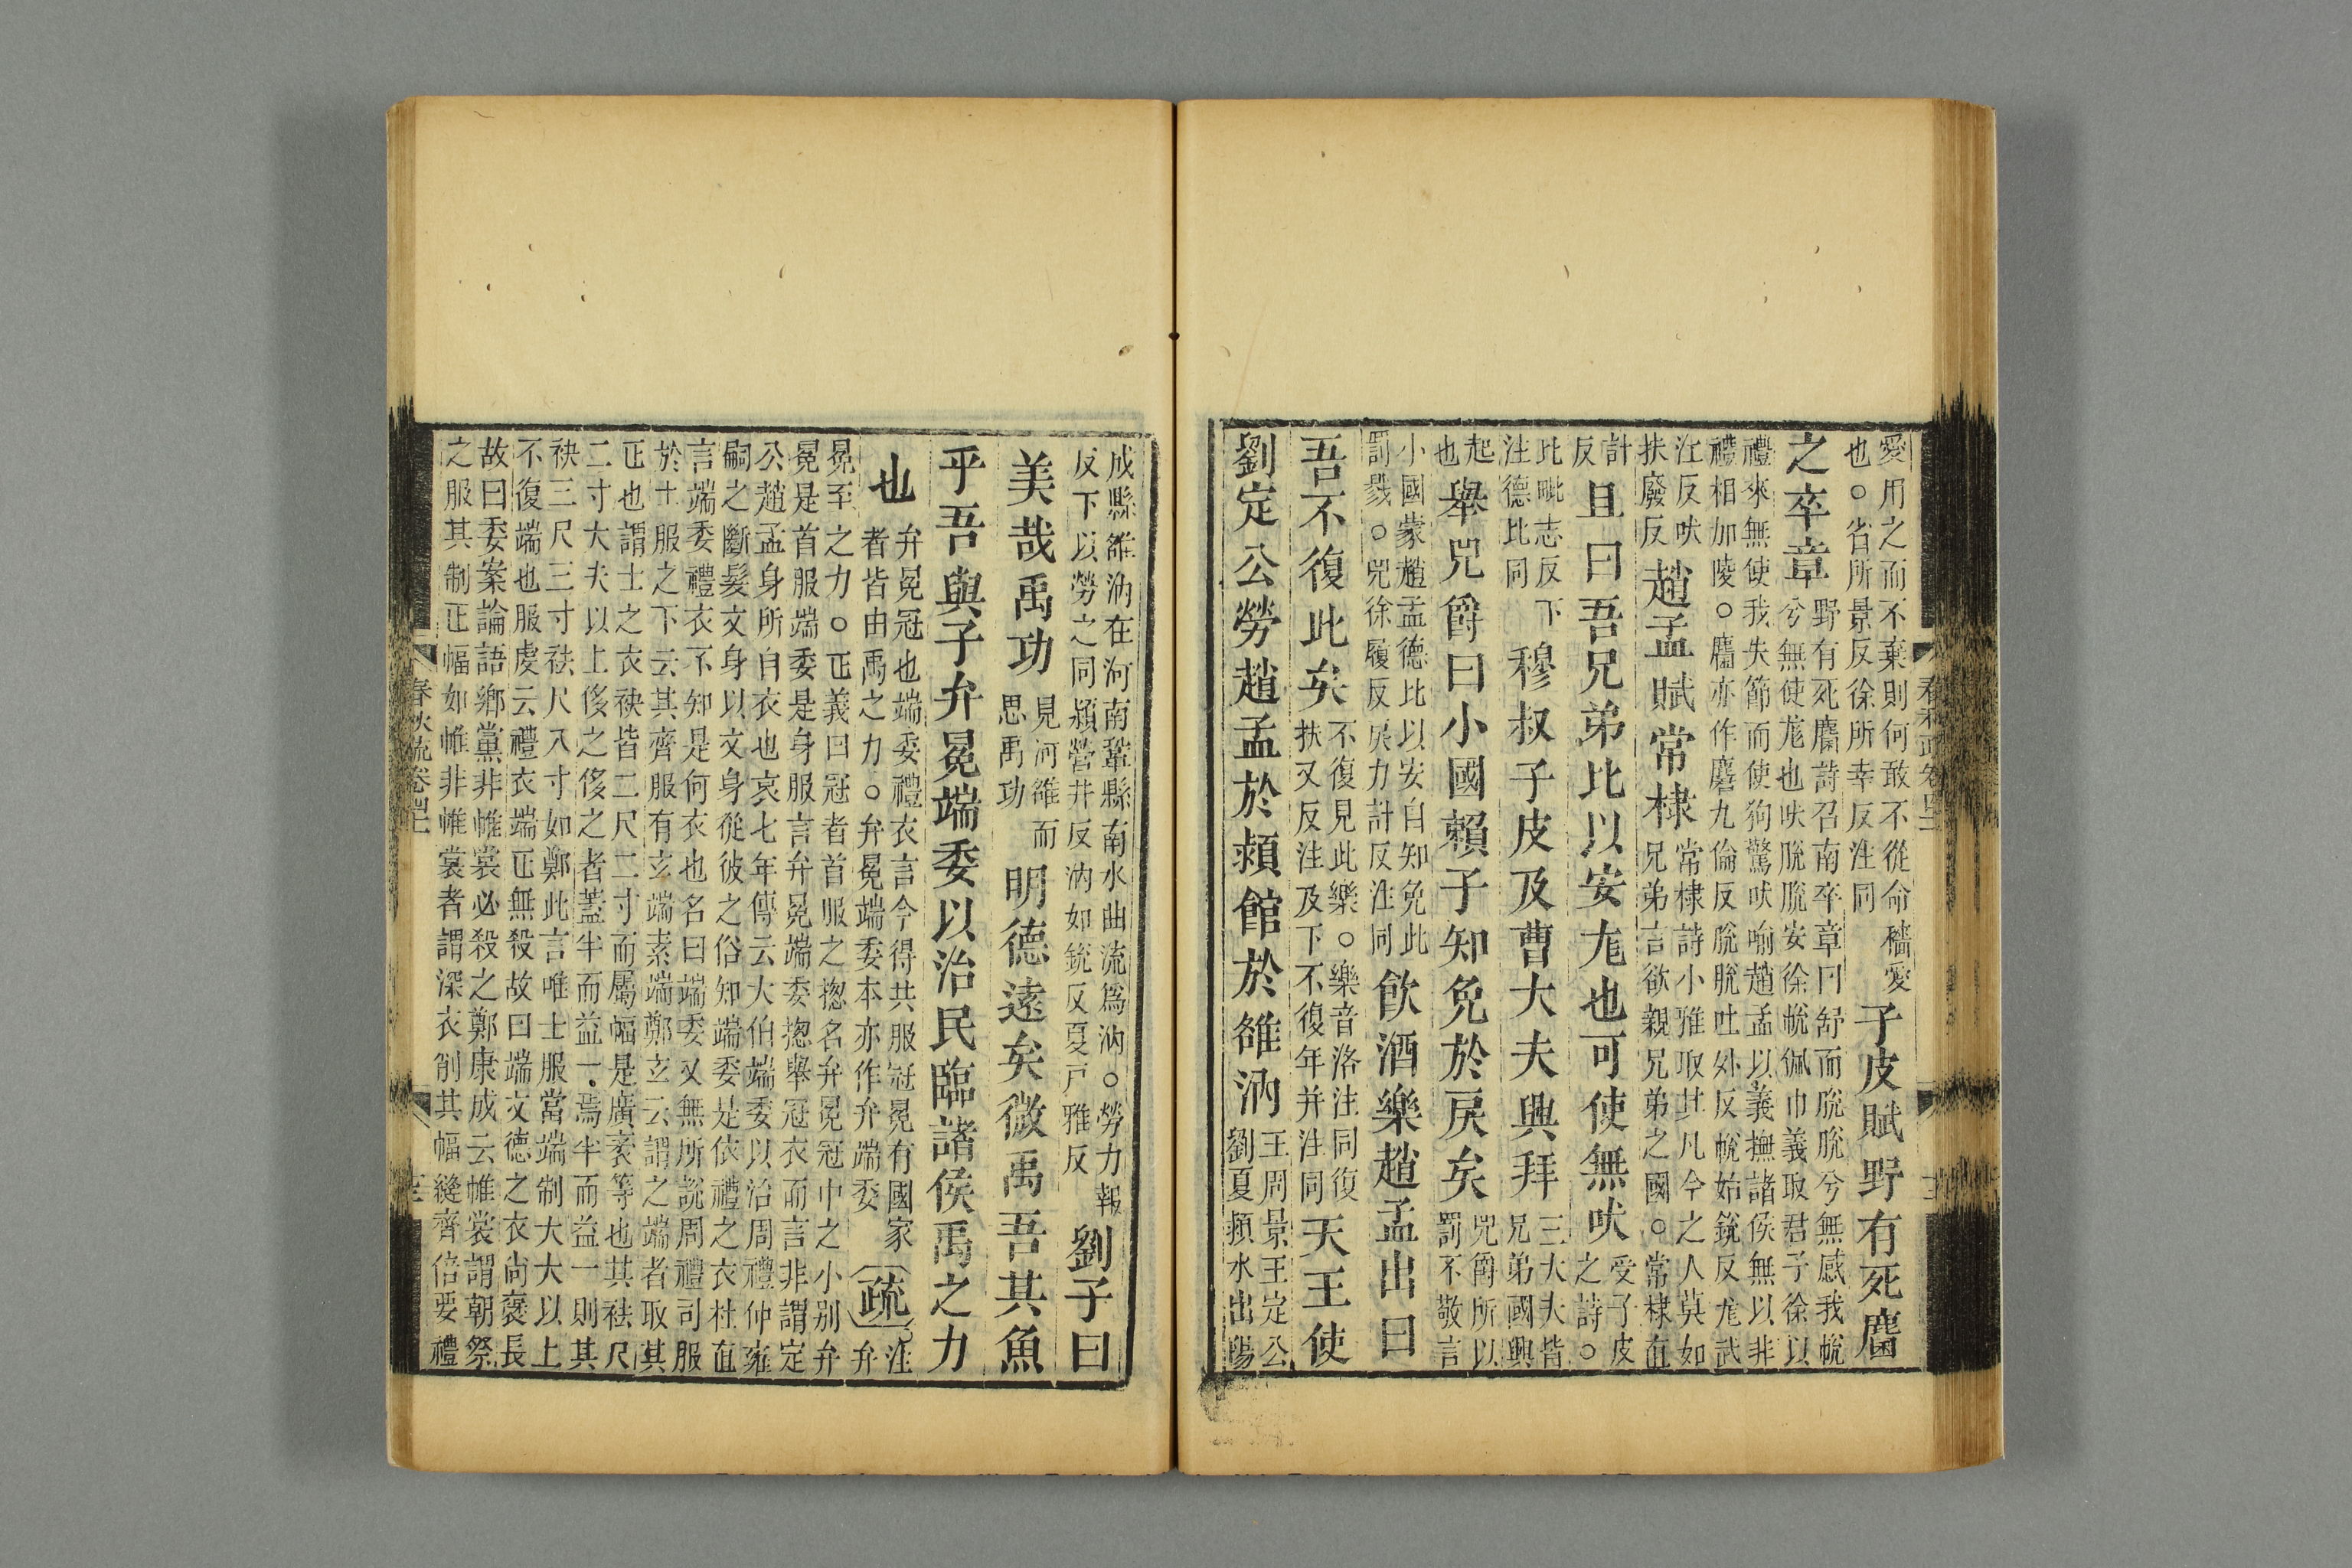 愛用之而不棄則何敢不從命穡愛
也○省所景反徐所幸反注同
子皮賦野有死麕
之卒章
野有死麕詩召南卒章曰舒而脫脫兮無感我帨
兮無使尨也吠脫脫安徐帨佩巾義取君子徐以
禮來無使我失節而使狗驚吠喻趙孟以義撫諸侯無以非
禮相加陵○麕亦作麏九倫反脫脫吐外反帨始銳反尨武
江反吠
扶廢反
趙孟賦常棣
常棣詩小雅取其凡今之人莫如
兄弟言欲親兄弟之國○常棣直
計
反
且曰吾兄弟比以安尨也可使無吠
受子皮
之詩○
比毗志反下
注德比同
穆叔子皮及曹大夫興拜
三大夫皆
兄弟國興
起
也
舉兕爵曰小國賴子知免於戾矣
兕爵所以
罰不敬言
小國蒙趙孟德比以安自知免此
罰戮○兕徐履反戾力計反注同
飲酒樂趙孟出曰
吾不復此矣
不復見此樂○樂音洛注同復
扶又反注及下不復年并注同
天王使
劉定公勞趙孟於潁館於雒汭
王周景王定公
劉夏潁水出陽
成縣雒汭在河南鞏縣南水曲流爲汭○勞力報
反下以勞之同潁營井反汭如銳反夏戶雅反
劉子曰
美哉禹功
見河雒而
思禹功
明德遠矣微禹吾其魚
乎吾與子弁冕端委以治民臨諸侯禹之力
也
弁冕冠也端委禮衣言今得共服冠冕有國家
者皆由禹之力○弁冕端委本亦作弁端委
疏
注
弁
冕至之力○正義曰冠者首服之揔名弁冕冠中之小別弁
冕是首服端委是身服言弁冕端委揔舉冠衣而言非謂定
公趙孟身所自衣也哀七年傳云大伯端委以治周禮仲雍
嗣之斷髮文身以文身從彼之俗知端委是依禮之衣杜直
言端委禮衣不知是何衣也名曰端委又無所說周禮司服
於士服之下云其齊服有玄端素端鄭玄云謂之端者取其
正也謂士之衣袂皆二尺二寸而屬幅是廣袤等也其袪尺
二寸大夫以上侈之侈之者蓋半而益一焉半而益一則其
袂三尺三寸袪尺八寸如鄭此言唯士服當端制大夫以上
不復端也服虔云禮衣端正無殺故曰端文德之衣尚褒長
故曰委案論語鄉黨非帷裳必殺之鄭康成云帷裳謂朝祭
之服其制正幅如帷非帷裳者謂深衣削其幅縫齊倍要禮
春秋疏卷四十一